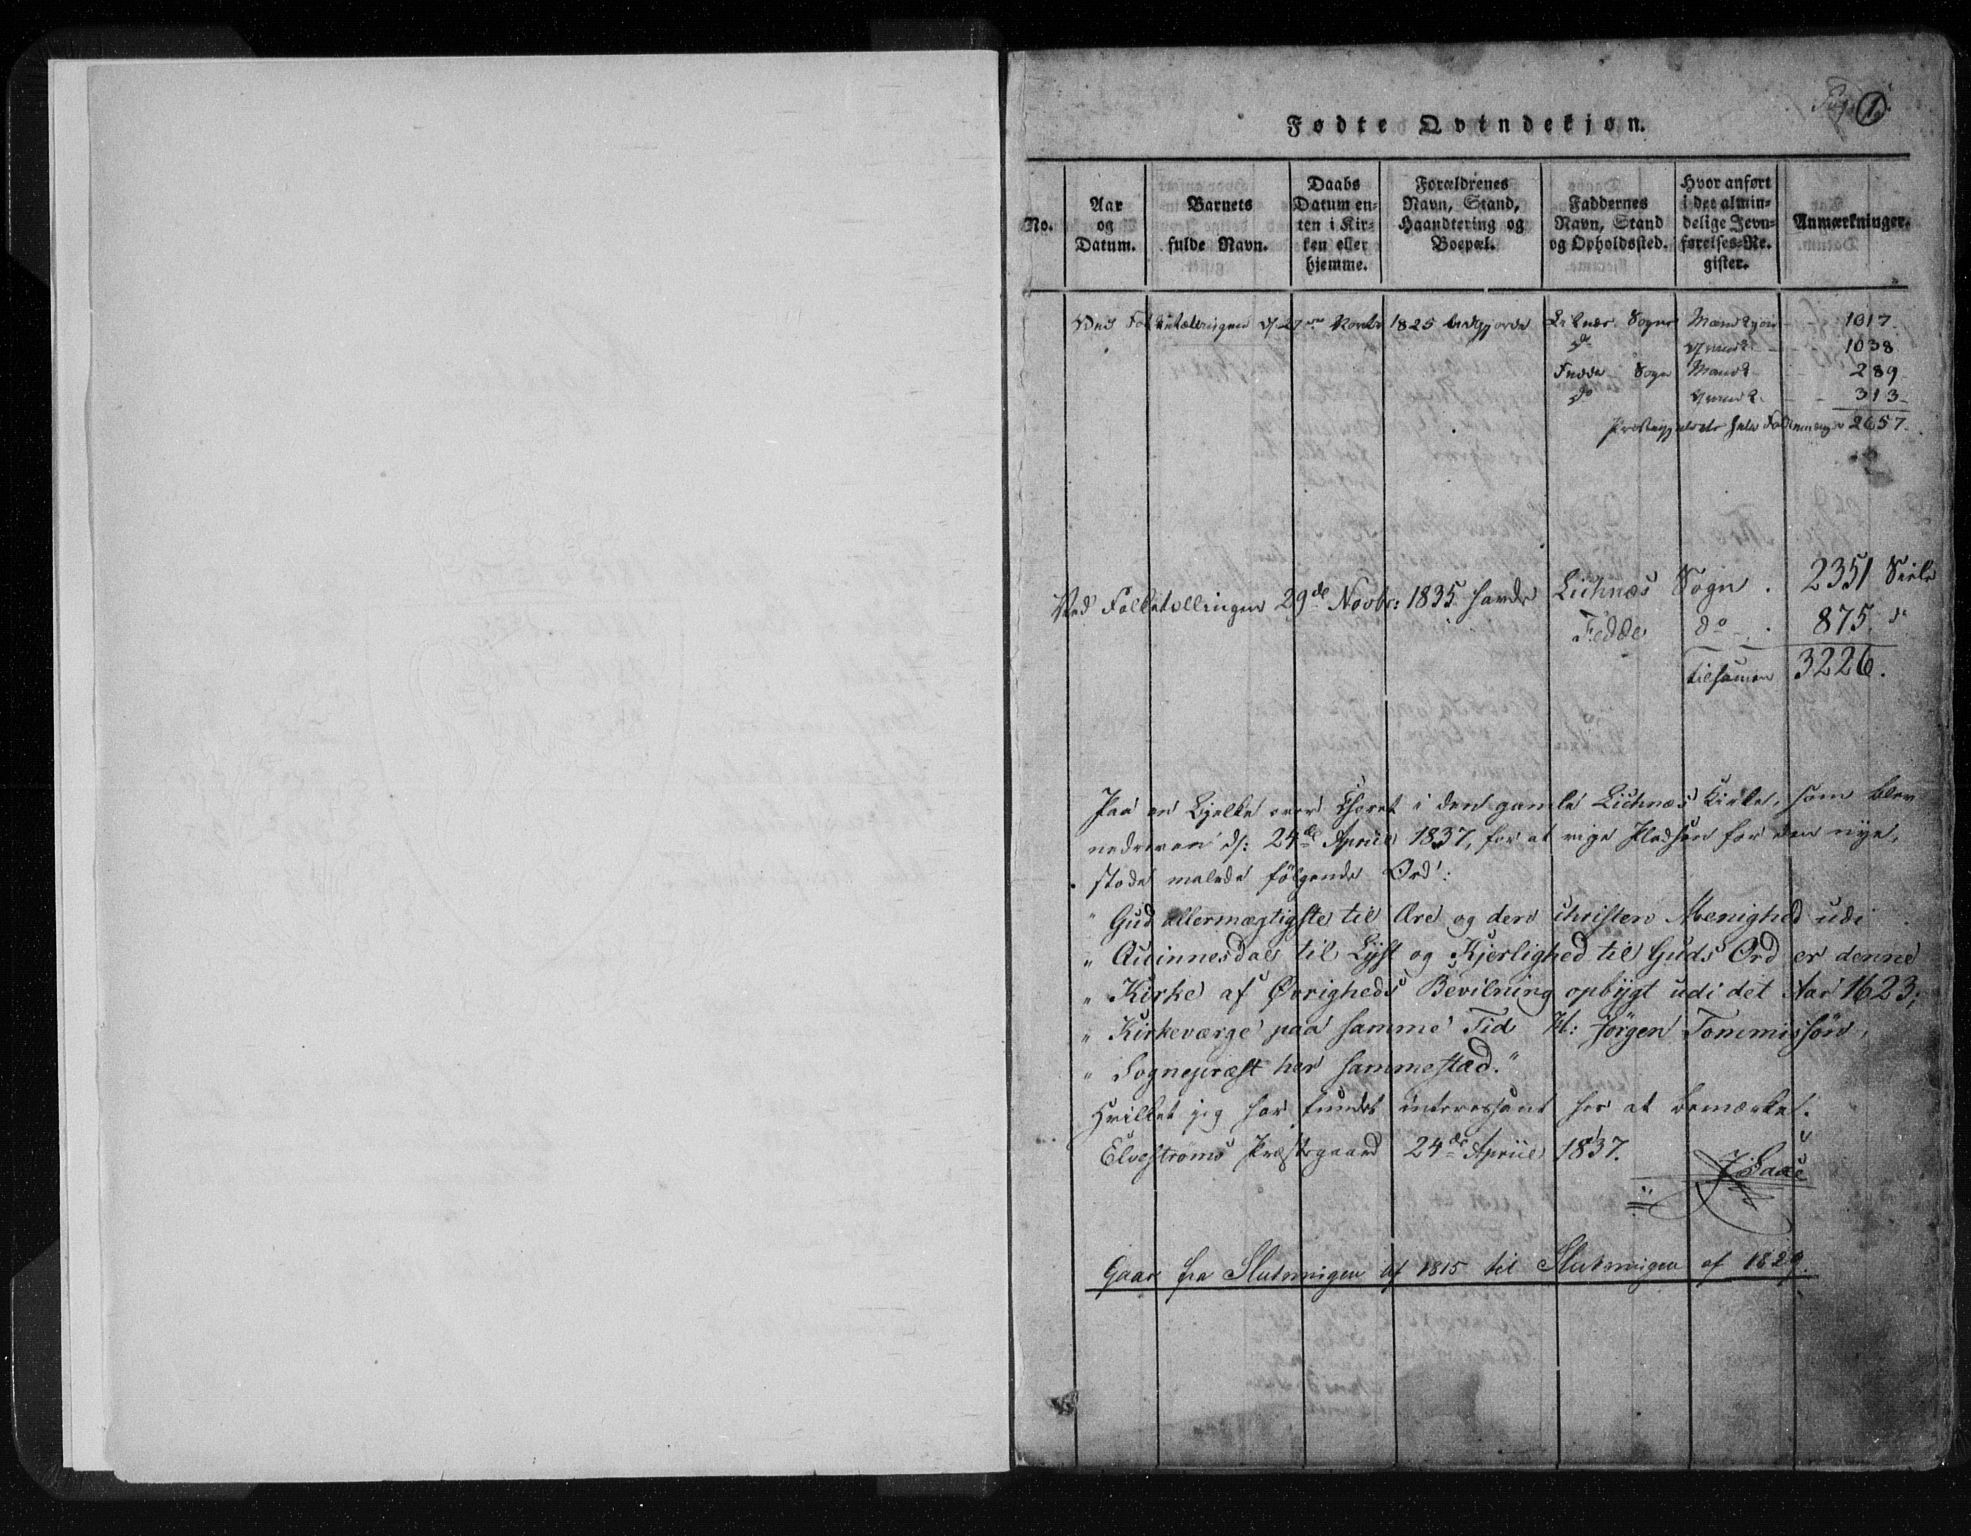 1.
Fødte Qvindekjøn.
No.
Aar og Datum.
Barnets fulde Navn.
Daabs Datum enten i Kirken eller hjemme.
Forældrenes Navn, Stand, Haandtering og Boepæl.
Faddernes Navn, Stand og Opholdssted.
Hvor anført i det almindelige Jevnførelses-Register.
Anmærkninger.
Ved Folketællingen d. 27de Novbr 1825 udgjorde Liknæs Sogns Mandkjøn - - 1017.
do Qvindk. - - 1038
Fedde Sogn Mandk - 289
do Qvindk. - - 313
Præstegjeldets hele Folkemængde 2657.
Ved Folketællingen 29de Novbr: 1835 havde Lichnæs Sogn . 2351 Siele
Fedde do - . 875. do
tilsamen 3226.
Paa en Bjelke over Choret i den gamle Lichnæs Kirke, som blev
nedreven d: 24de April 1837, for at vige Pladsen for den nye,
stode malede følgende Ord:
" Gud allermægtigste til Ære og den christen Menighed udi
" Quinnesdal til Lyst og Kjerlighed til Guds Ord er denne
" Kirke af Øvrigheds Bevilning opbygt udi det Aar 1623;
" Kirkeværge paa samme Tid H: Jørgen Tommissøn,
" Sognepræst her sammestæd."
Hvilket jeg har fundet interessant her at bemærke.
Elvestrøms Præstegaard 24de April 1837.
Gaar fra Slutningen af 1815 til Slutningen af 1829.